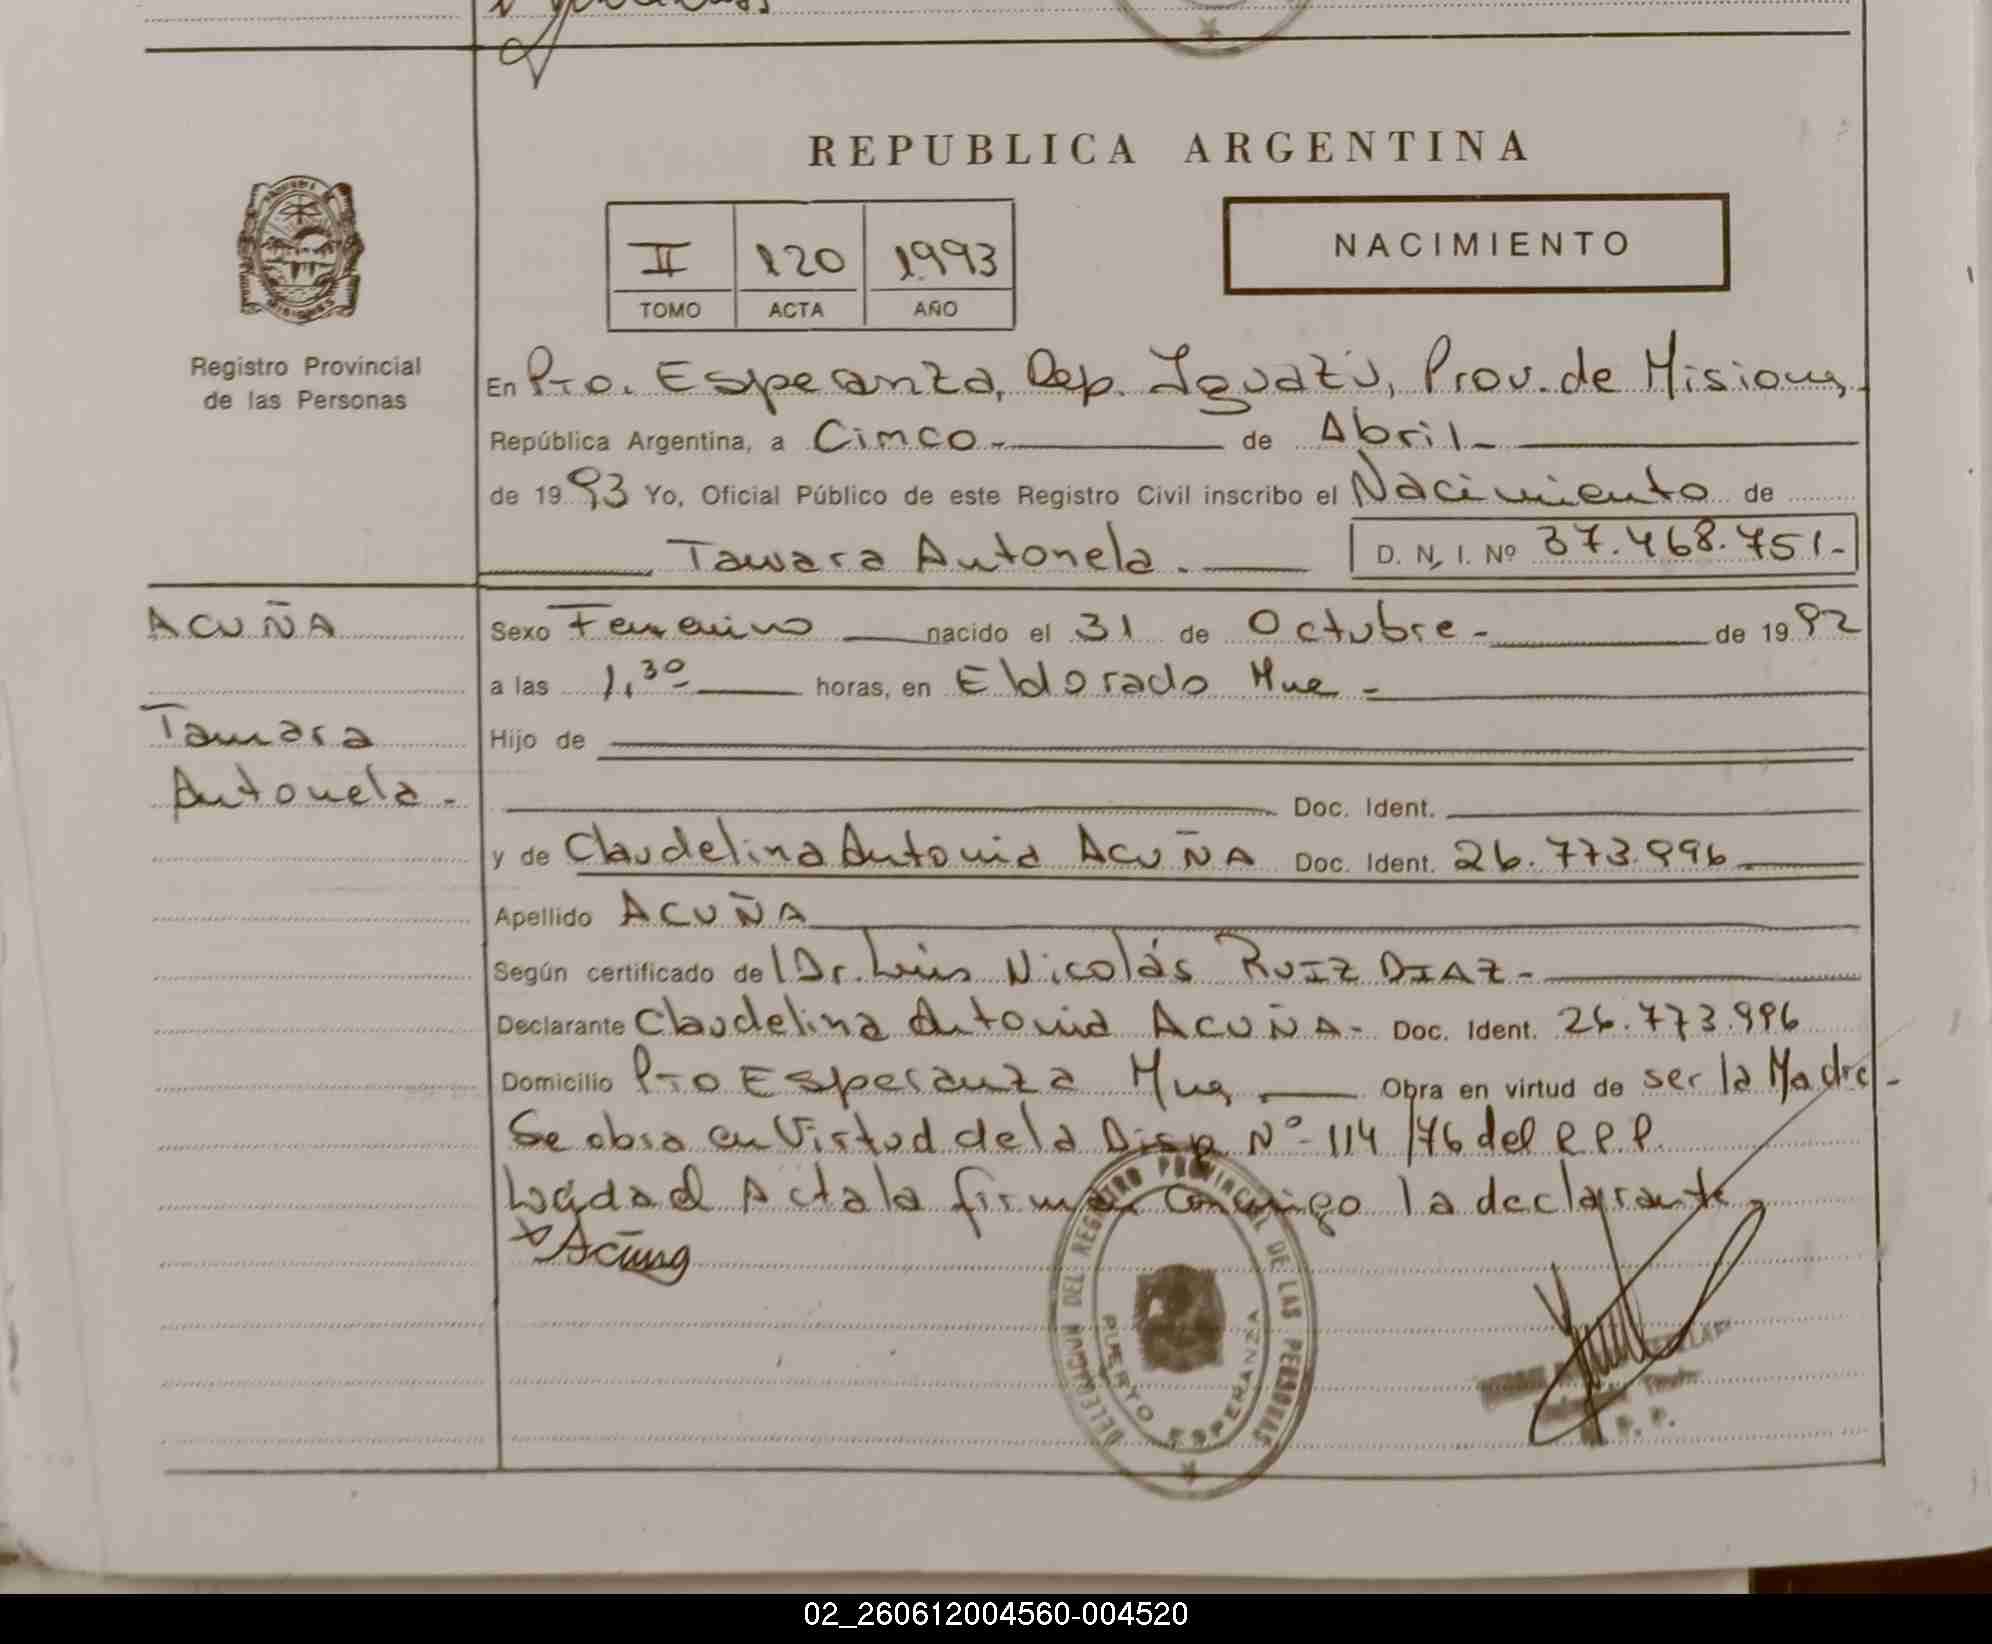 REPUBLICA ARGENTINA
NACIMIENTO
II 120 1993
TOMO ACTA AÑO
Registro Provincial
de las Personas
En Pto. Esperanza, Dep. Iguazú, Prov. de Misiones,
República Argentina, a Cinco de Abril
de 1993 Yo, Oficial Público de este Registro Civil inscribo el Nacimiento de
Tamara Antonela. D. N. I. Nº 37.468.751-
ACUÑA
Tamara
Antonela.
Sexo Femenino nacido el 31 de Octubre - de 1992
a las 1,30 horas, en Eldorado Mnes -
Hijo de
Doc. Ident.
y de Claudelina Antonia ACUÑA Doc. Ident. 26.773.996
Apellido ACUÑA
Según certificado del Dr. Luis Nicolás RUIZ DIAZ-
Declarante Claudelina Antonia ACUÑA- Doc. Ident. 26.773.996
Domicilio Pto Esperanza Mnes Obra en virtud de ser la Madre-
Se obra en Virtud de la Disp Nº 114/76 del R.P.P.
Leída el Acta la firma conmigo la declarante,
Acuña
DELEGACION DEL REGISTRO PROVINCIAL DE LAS PERSONAS
PUERTO ESPERANZA
02_260612004560-004520